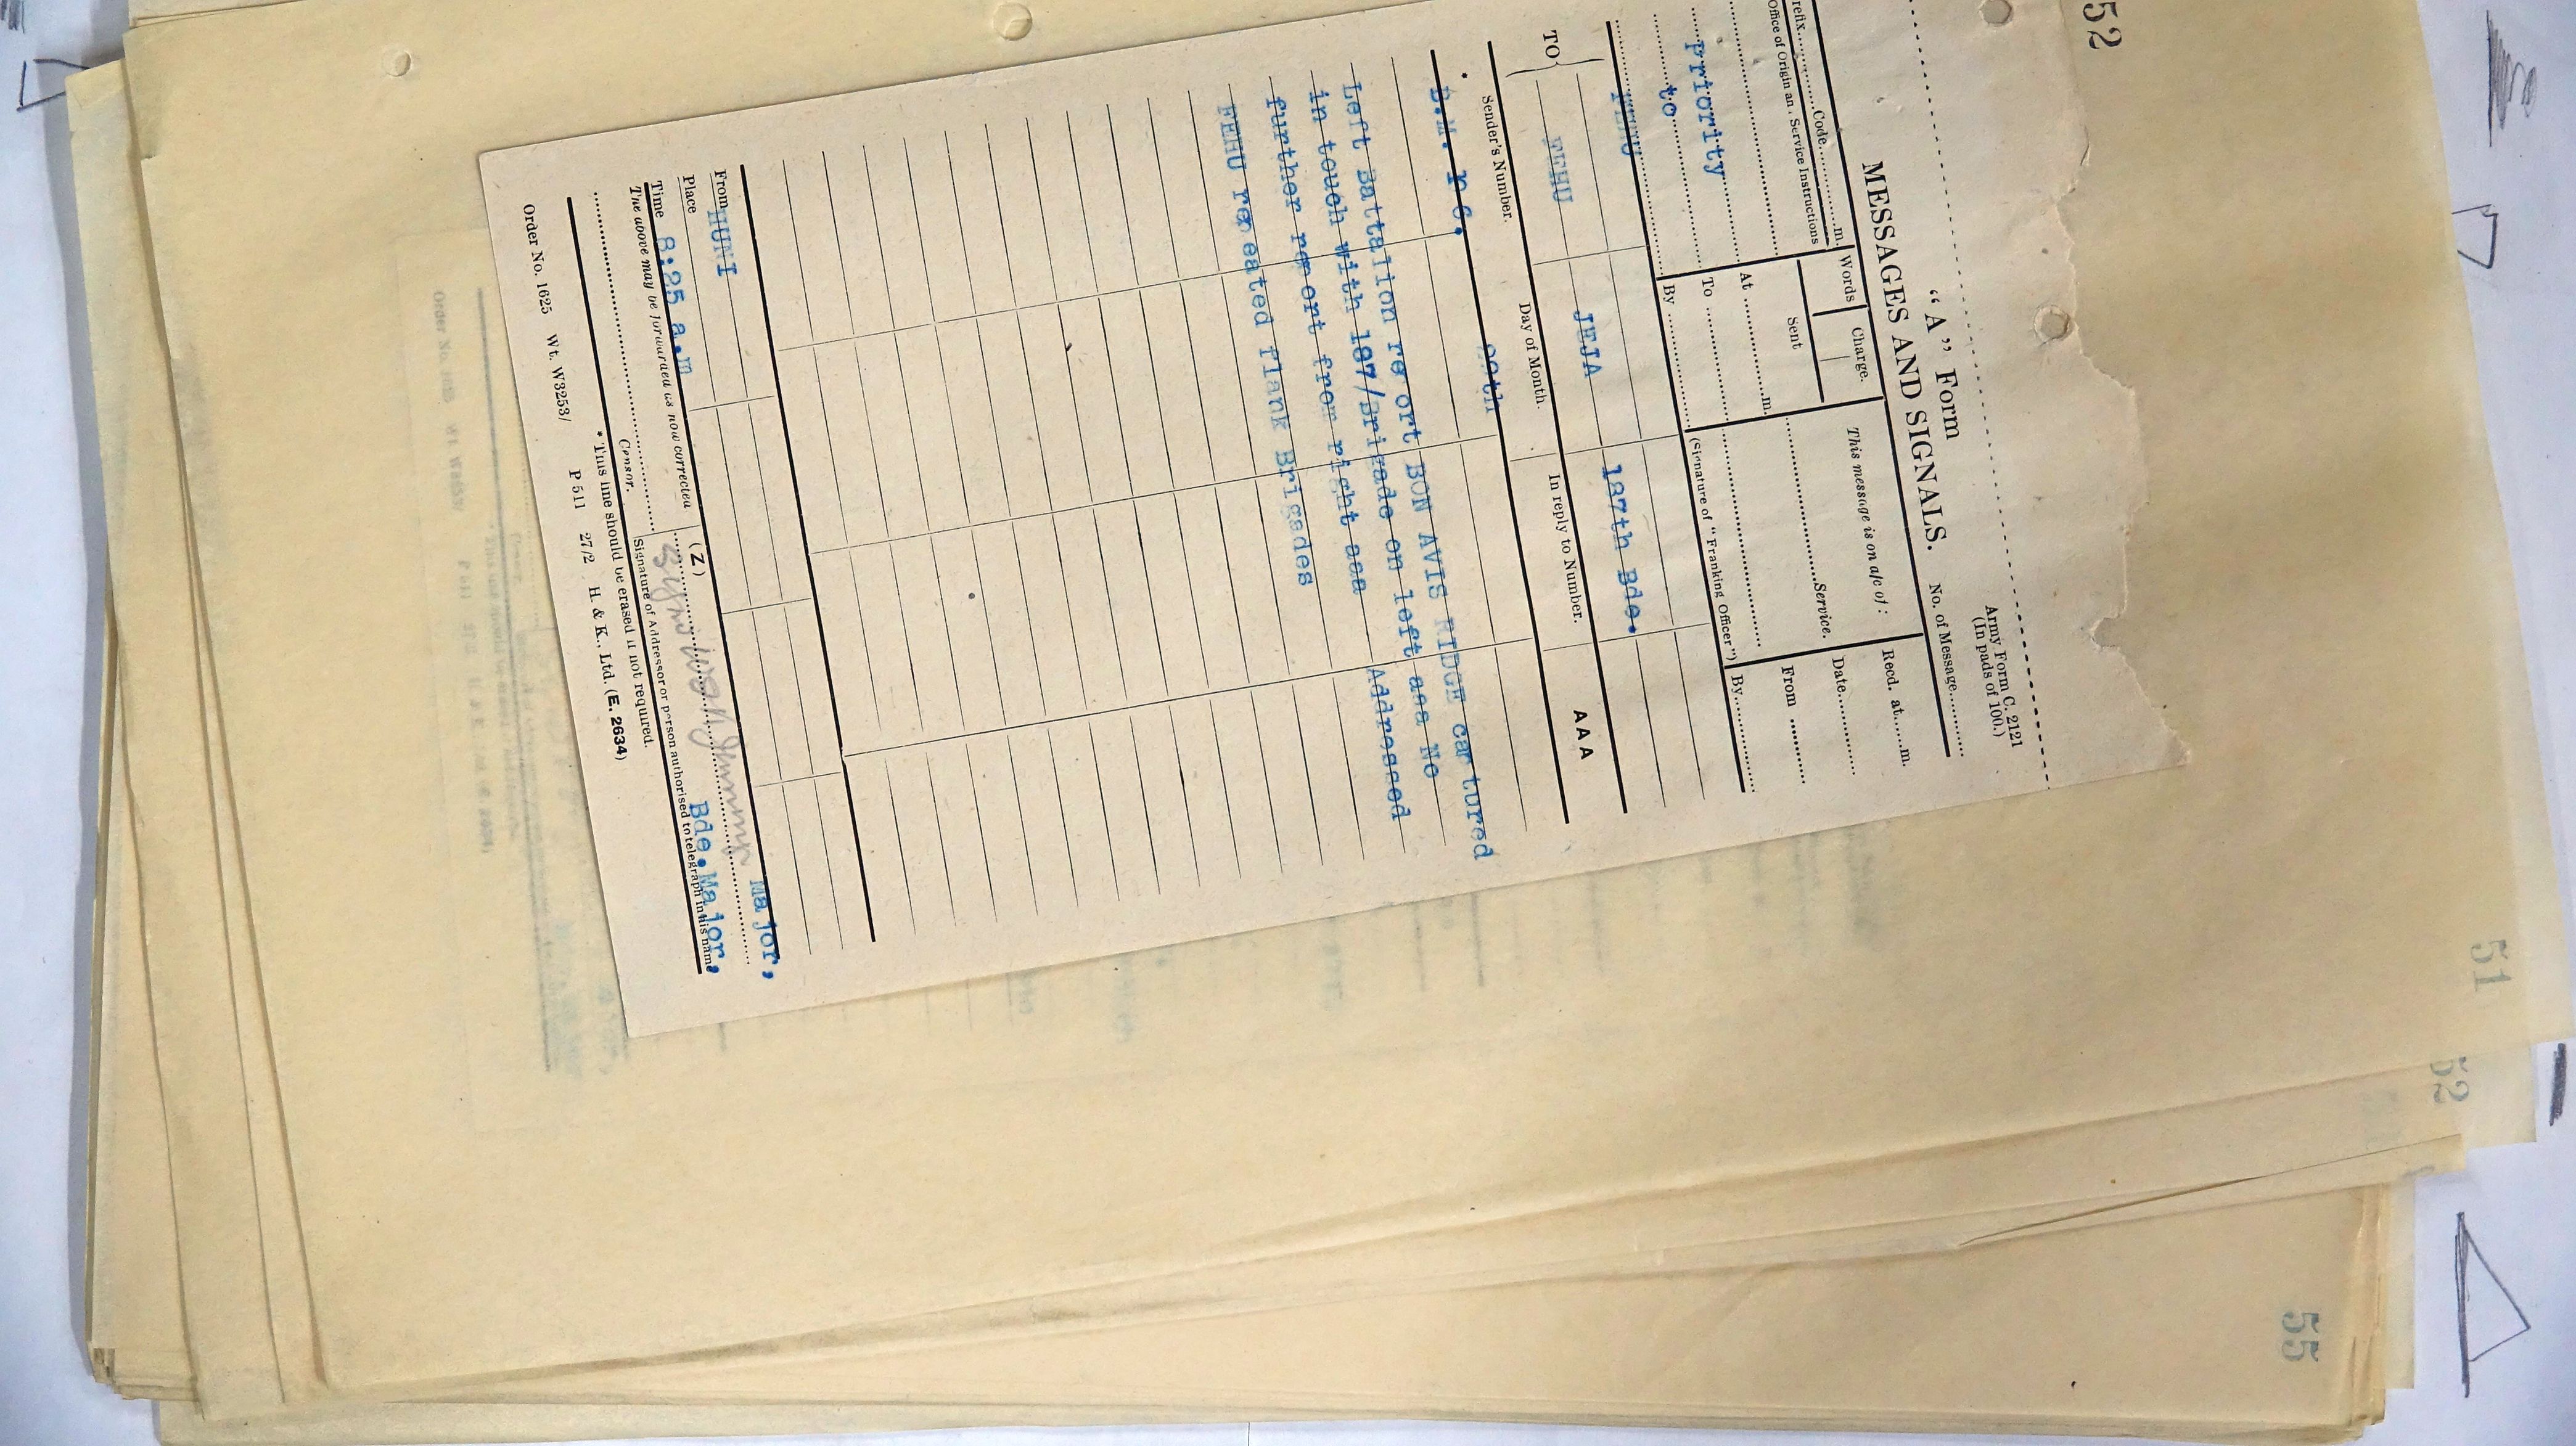 52
"A" Form
MESSAGES AND SIGNALS.
Army Form C. 2121
(In pads of 100.)
No. of Message
Code m.
Office of Origin an Service Instructions
Words Charge.
This message is on a/c of :
Recd. at m.
Sent
Service.
Date
priority
At m.
From
to
To
FEHU
By
(Signature of "Franking Officer")
By
TO
FEHU JEJA 187th Bde.
Sender's Number. Day of Month. In reply to Number.
AAA
B.M.
Left Battalion re ort BON AVIS RIDGE captured
in touch with 187/Brigade on left aaa No
further report from right aaa Addressed
FEHU repeated Flank Brigades
From HUNI
Place
Time 8:25 a.m
The above may be forwarded as now corrected
(Z)
Major,
Bde. Major.
Censor.
Signature of Addressor or person authorised to telegraph in his name
* This line should be erased if not required.
Order No. 1625 Wt. W3253/ P 511 27/2 H. & K., Ltd. (E. 2634)
51
52
55